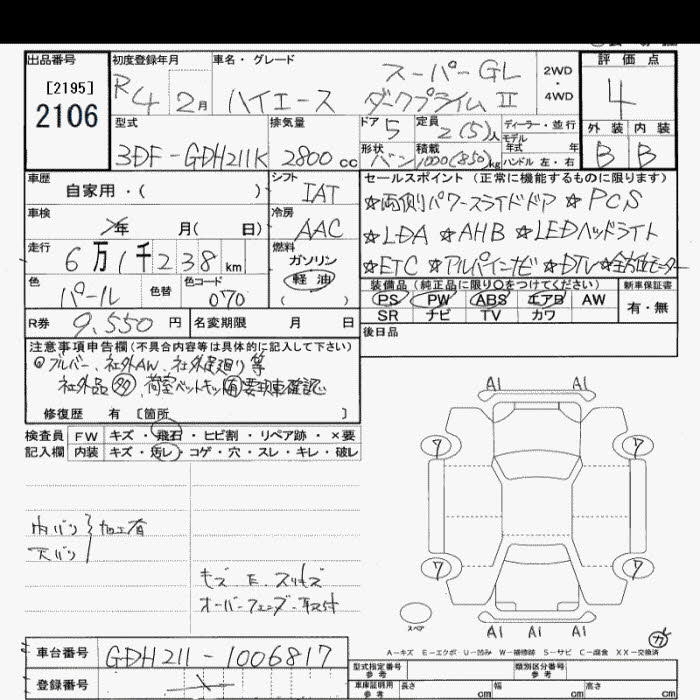 出品番号
[2195]
2106
初度登録年月
R4 2月
車名・グレード
ハイエース
スーパーGL
ダークプライムⅡ
2WD
・
4WD
評価点
4
外装 内装
B B
型式
3DF-GDH211K
排気量
2800cc
ドア 5
定員 2(5)人
形状 バン
積載 1000(850)kg
ディーラー・並行
モデル
年式 年
ハンドル 左・右
車歴
自家用・( )
シフト
IAT
車検
年 月( 日)
冷房
AAC
走行
6万1千238km
燃料
ガソリン
軽油
( )
色
パール
色替
色コード
070
R券 9,550円
名変期限 月 日
セールスポイント(正常に機能するものに限ります)
☆両側パワースライドドア ☆PCS
☆LDA ☆AHB ☆LEDヘッドライト
☆ETC ☆アルパインナビ ☆DTV ☆全方位モニター
装備品(純正品に限り○をつけてください)
PS PW ABS エアB AW
SR ナビ TV カワ
新車保証書
有・無
後日品
注意事項申告欄(不具合内容等は具体的に記入して下さい)
ブルバー、社外AW、社外足廻り等
社外品多、荷室ベットキット有要現車確認
修復歴 有 [箇所 ]
検査員 FW キズ・飛石・ヒビ割・リペア跡・×要
記入欄 内装 キズ・汚レ・コゲ・穴・スレ・キレ・破レ
内バリ 加工有
天バリ
キズ E. スリキズ
オーバーフェンダー取付
A1 A1
7 7
7 7
A1 A1 A1
スペア
A-キズ E-エクボ U-凹み W-補修跡 S-サビ C-腐食 XX-交換済
車台番号 GDH211-1006817
登録番号
型式指定番号
参考
類別区分番号
参考
車庫証明用
参考
長さ cm 幅 cm 高さ cm